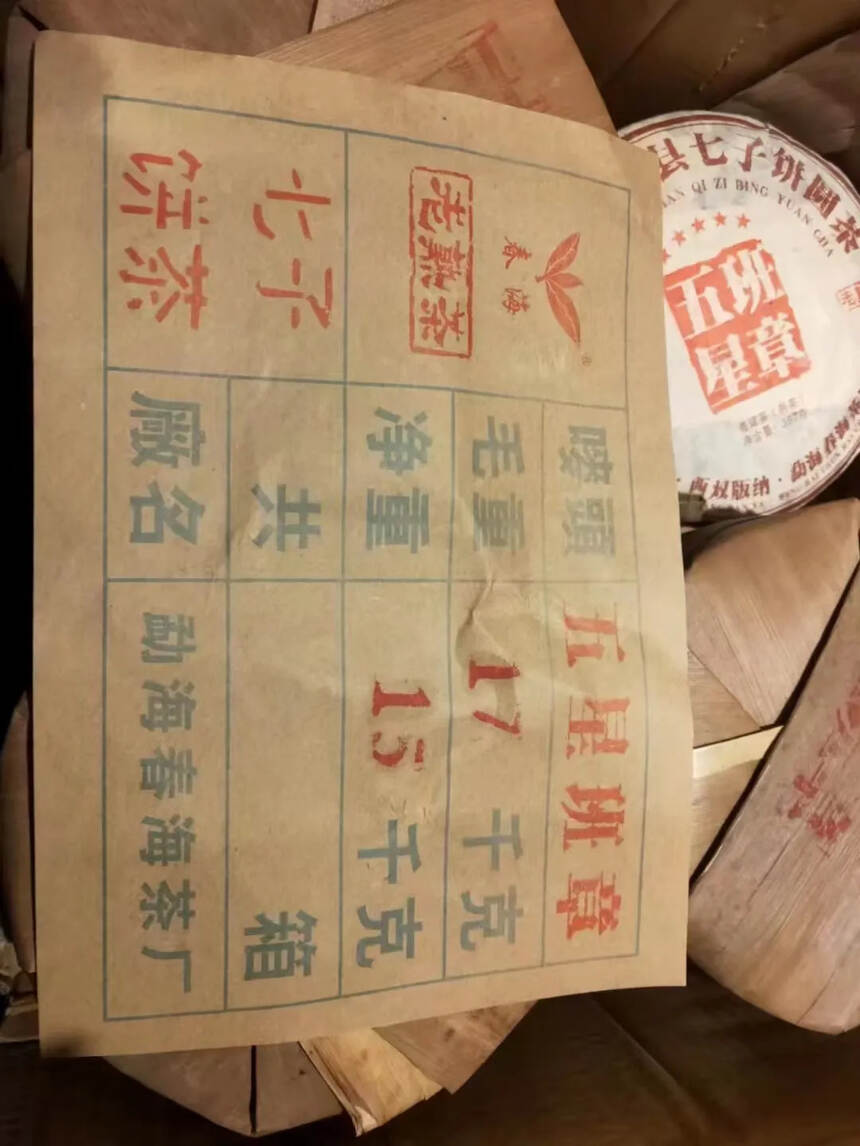 春海
®
老熟茶
七子
饼茶
嘜頭 五星班章
毛重 17 千克
净重 15 千克
共 箱
廠名 勐海春海茶厂
县七子饼圆茶
QI ZI BING YUAN CHA
五班
星章
普洱茶(熟茶)
西双版纳